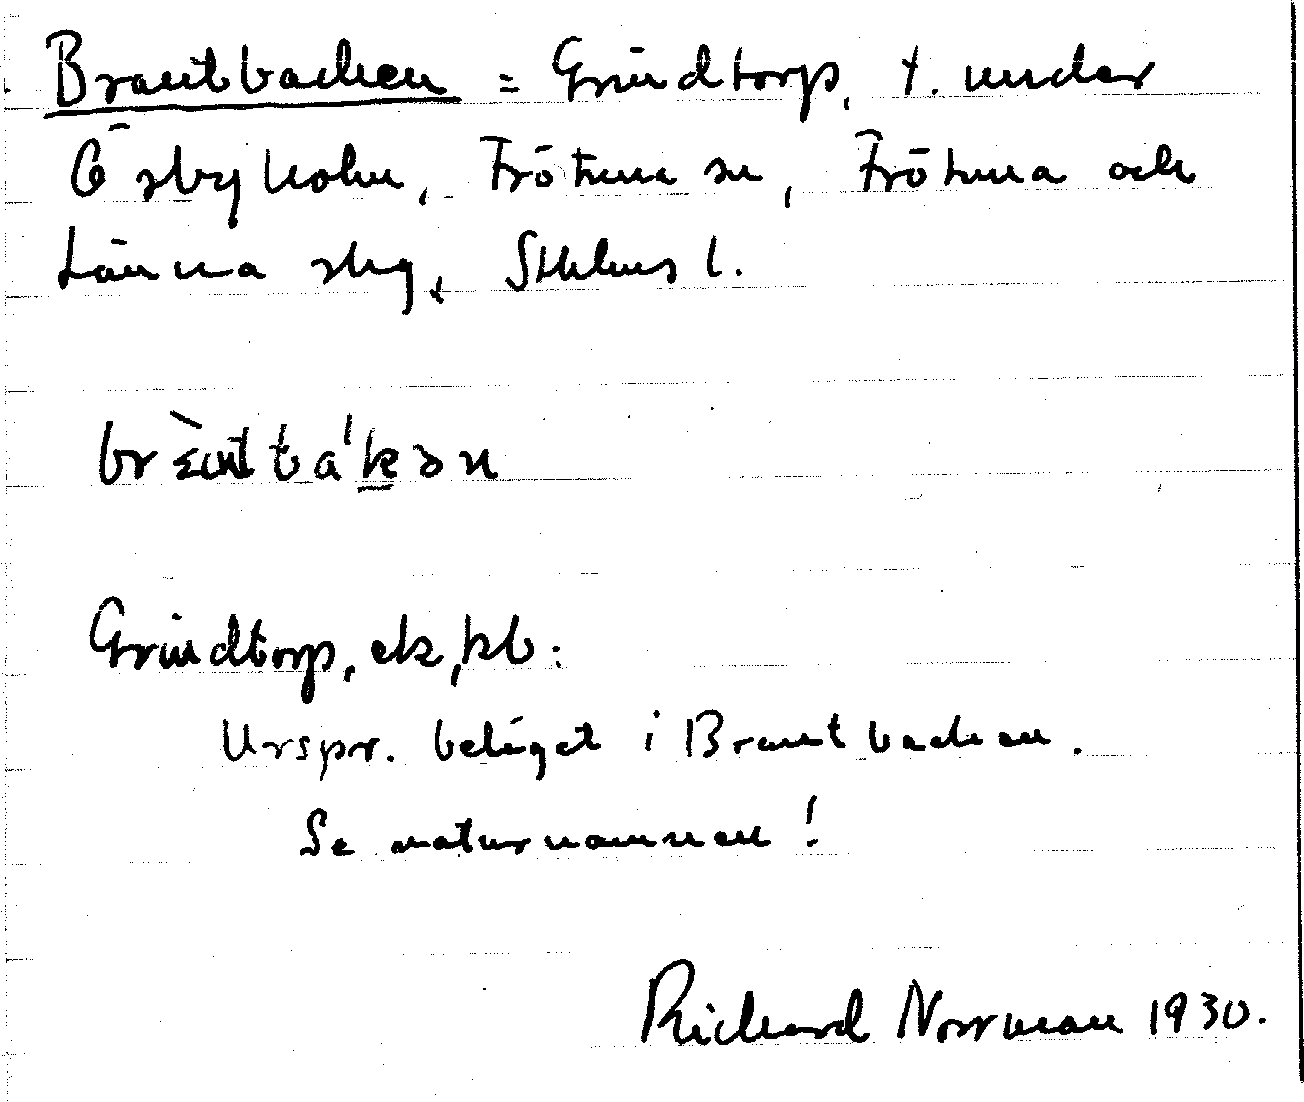 Brantbacken = Grindtorp, t. under
Östbyholm, Frötuna sn, Frötuna och
Länna skg, Sthlms l.
Grindtorp, ek, kb:
Urspr. beläget i Brantbacken.
Se naturnamnen!
Richard Norrman 1930.